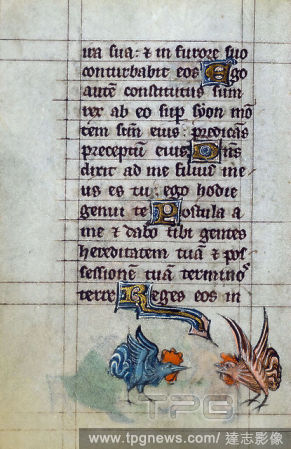 ira sua: et in furore suo
conturbabit eos Ego
autē constitutus sum
rex ab eo sup syon mō
tem scm̄ eius: predicās
preceptū eius Dn̄s
dixit ad me filius me
us es tu: ego hodie
genui te Postula a
me et dabo tibi gentes
hereditatem tuā et pos
sessionē tuā terminos
terre Reges eos in
TPG
www.tpgnews.com / 達志影像